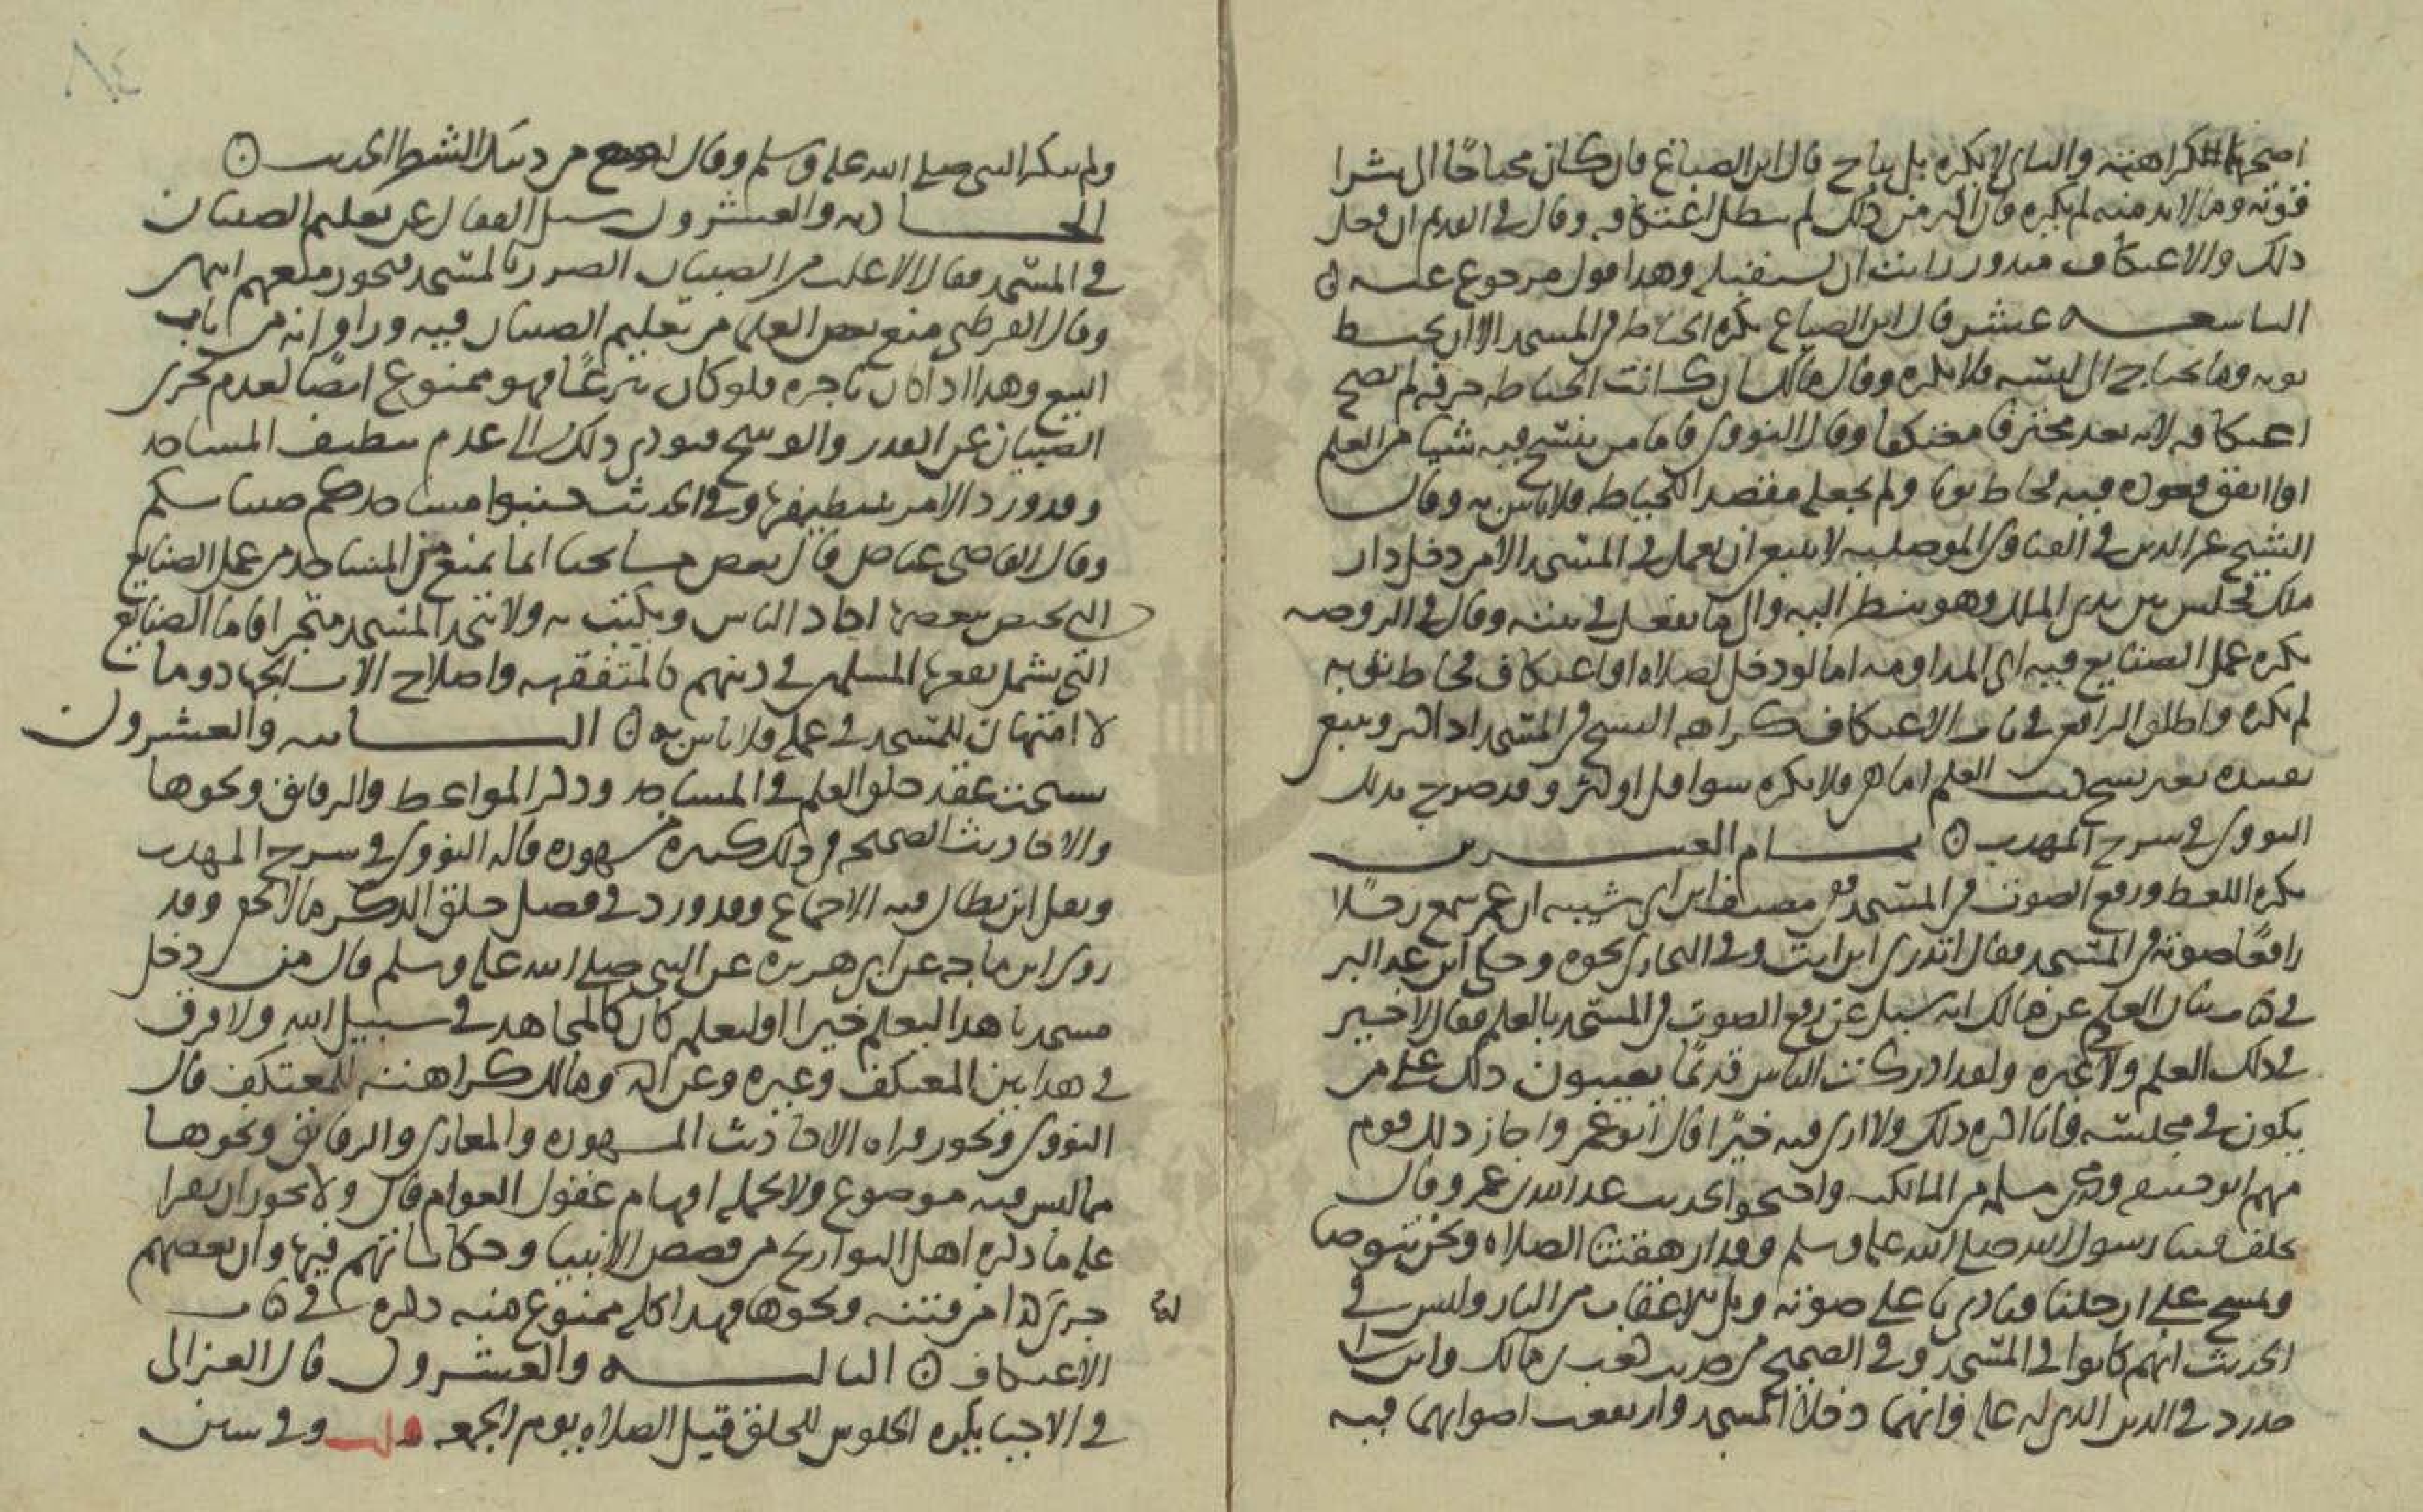 اصحهما كراهته والثاني لا يكره بل يباح قال ابن الصباغ فان كان محتاجا الى شرا
قوته وما لا بد منه لم يكره فان اكثر من ذلك لم يبطل اعتكافه وقال في القديم ان فعل
ذلك والاعتكاف منذور رايت ان يستقبله وهذا قول مرجوع عنه ه
التاسعه عشر قال ابن الصباغ يكره الخياطه في المسجد الا ان يخيط
ثوبه وما يحتاج الى لبسه فلا يكره وقال مالك ان كانت الخياطه حرفه لم يصح
اعتكافه لانه يعد محترفا معتكفا وقال النووي فاما من ينسخ فيه شيا من العلم
او اتفق قعوده فيه فخاط ثوبا ولم يجعله مقصد الخياطه فلا باس به وقال
الشيخ عز الدين في الفتاوى الموصليه لا ينبغي ان يعمل في المسجد الا من دخل دار
ملك فجلس بين يدي الملك وهو ينظر اليه والى ما يفعل في بيته وقال في الروضه
يكره عمل الصنايع فيه اي المداومه اما لو دخل لصلاه او اعتكاف فخاط ثوبه
لم يكره واطلق الرافعي في باب الاعتكاف كراهه النسخ في المسجد اذا اكثر وينبغي
تقييده بغير نسخ كتب العلم اما هو فلا يكره سوا قل او كثر وقد صرح بذلك
النووي في شرح المهذب ه تمام العشرين
يكره اللغط ورفع الصوت في المسجد ففي مصنف ابن ابي شيبه ان عمر سمع رجلا
رافعا صوته في المسجد فقال اتدري اين انت وفي البخاري نحوه وحكى ابن عبد البر
في كتاب بيان العلم عن مالك انه سيل عن رفع الصوت في المسجد بالعلم فقال لا خير
في ذلك العلم ولا غيره ولقد ادركت الناس قديما يعيبون ذلك على من
يكون في مجلسه وانا اكره ذلك ولا ارى فيه خيرا قال ابو عمر واجاز ذلك قوم
منهم ابو حنيفه ومحمد بن مسلمه من المالكيه واحتجوا بحديث عبد الله بن عمرو قال
تخلف عنا رسول الله صلى الله عليه وسلم وقد ارهقتنا الصلاه ونحن نتوضا
ونمسح على ارجلنا فنادى باعلى صوته ويل للاعقاب من النار وليس في
الحديث انهم كانوا في المسجد وفي الصحيح من حديث كعب بن مالك وابن ابي
حدرد في الدين الذي له عليه وانهما دخلا المسجد وارتفعت اصواتهما فيه
ولم ينكر النبي صلى الله عليه وسلم وقال لكعب ضع من دينك الشطر الحديث ه
الحاديه والعشرون سيل القفال عن تعليم الصبيان
في المسجد فقال الاغلب من الصبيان الضرر بالمسجد فيجوز منعهم انتهى
وقال القرطبي منع بعض العلما من تعليم الصبيان فيه وراوا انه من باب
البيع وهذا اذا كان باجره فلو كان تبرعا فهو ممنوع ايضا لعدم تحرز
الصبيان عن القذر والوسخ فيودي ذلك الى عدم تنظيف المساجد
وقد ورد الامر بتنظيفها وفي الحديث جنبوا مساجدكم صبيانكم
وقال القاضي عياض قال بعض مشايخنا انما يمنع في المساجد من عمل الصنايع
التي يختص بنفعها احاد الناس ويكتسب به ولا يتخذ المسجد متجرا فاما الصنايع
التي يشمل نفعها المسلمين في دينهم كالمتفقهه واصلاح الات الجهاد وما
لا امتهان للمسجد في عمله فلا باس به ه الثانيه والعشرون
يستحب عقد حلق العلم في المساجد وذكر المواعظ والرقايق ونحوها
والاحاديث الصحيحه في ذلك كثيره مشهوره قاله النووي في شرح المهذب
ونقل ابن بطال فيه الاجماع وقد ورد في فضل حلق الذكر ما لا يخفى وقد
روى ابن ماجه عن ابي هريره عن النبي صلى الله عليه وسلم قال من دخل
مسجدنا هذا ليتعلم خيرا او ليعلمه كان كالمجاهد في سبيل الله ولا فرق
في هذا بين المعتكف وغيره وعن احمد ومالك كراهته للمعتكف قال
النووي ويجوز قراه الاحاديث المشهوره والمغازي والرقايق ونحوها
مما ليس فيه موضوع ولا يحتمله افهام عقول العوام قال ولا يجوز ان يقرا
على ما ذكره اهل التواريخ من قصص الانبيا وحكاياتهم فيها وان بعضهم
جرى له كذا من فتنه ونحوها فهذا كله ممنوع منه ذكره في كتاب
الاعتكاف ه الثالثه والعشرون قال الغزالي
في الاحيا يكره الجلوس للحلق قبل الصلاه يوم الجمعه قلت وفي سنن